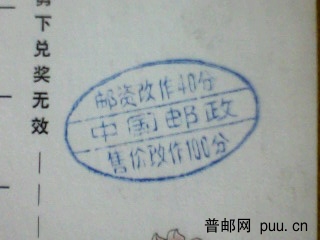 剪下兑奖无效
邮资改作40分
中国邮政
售价改作100分
普邮网 puu.cn